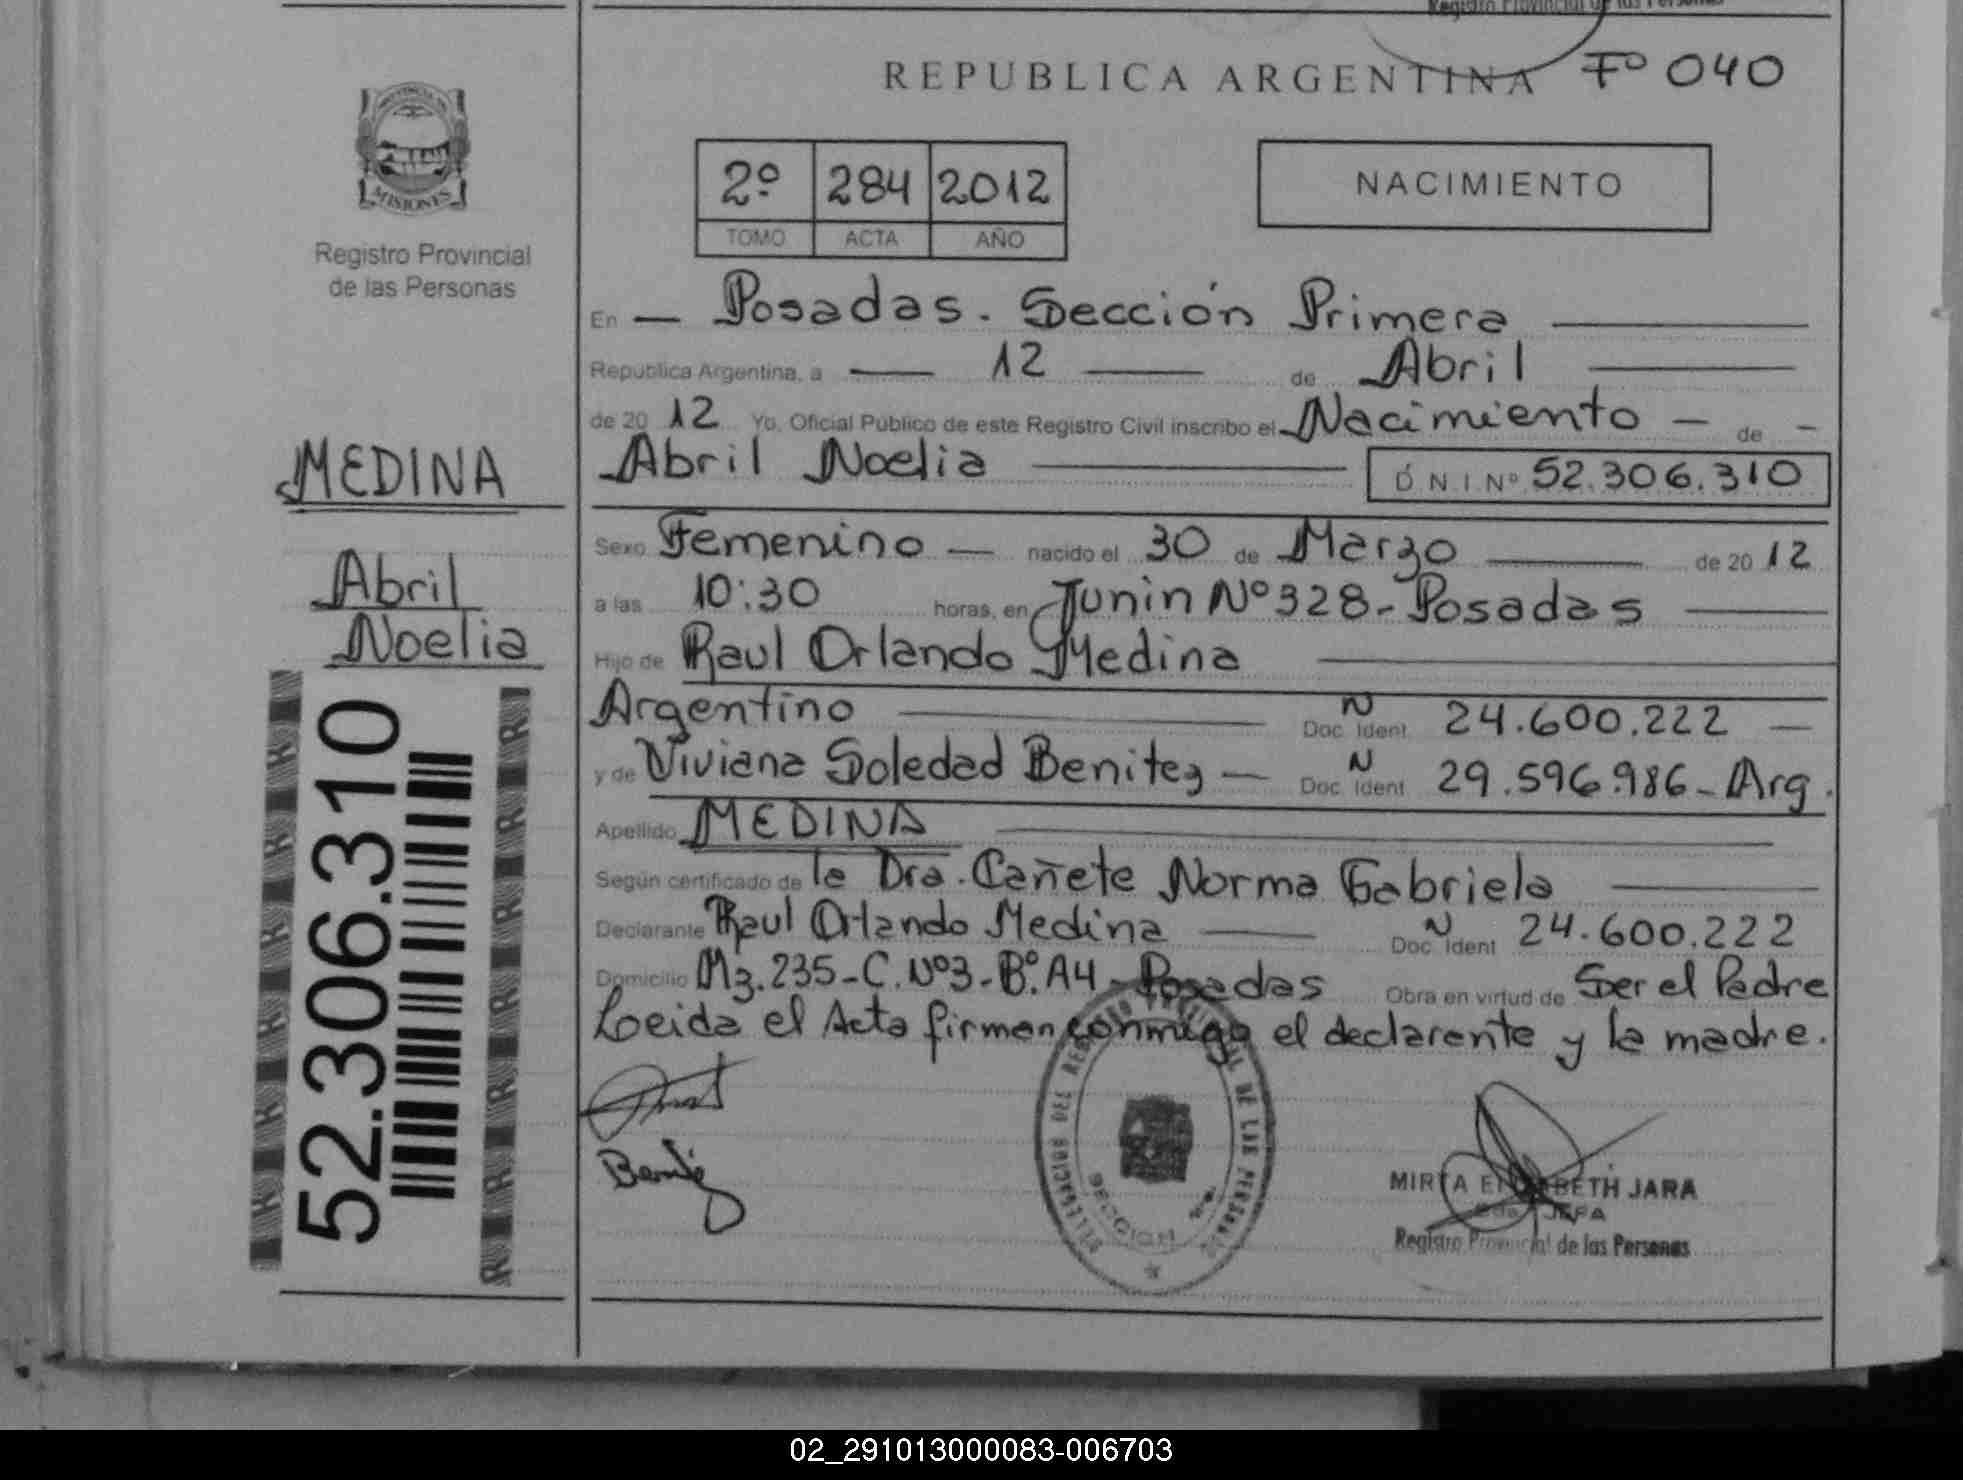 Registro Provincial de las Personas
REPUBLICA ARGENTINA Fº 040
PROVINCIA DE
MISIONES
Registro Provincial
de las Personas
2º 284 2012
TOMO ACTA AÑO
NACIMIENTO
En — Posadas. Sección Primera
Republica Argentina, a — 12 — de Abril
de 20 12 Yo, Oficial Público de este Registro Civil inscribo el Nacimiento — de —
Abril Noelia — D.N.I.Nº 52.306.310
MEDINA
Abril
Noelia
52.306.310
Sexo Femenino — nacido el 30 de Marzo — de 20 12
a las 10:30 horas, en Junin Nº 328 - Posadas
Hijo de Raul Orlando Medina
Argentino — N Doc. Ident 24.600.222 —
y de Viviana Soledad Benitez — N Doc. Ident 29.596.986 - Arg.
Apellido MEDINA
Según certificado de la Dra. Cañete Norma Gabriela
Declarante Raul Orlando Medina — N Doc. Ident 24.600.222
Domicilio Mz. 235 - C. Nº3 - Bº. A4 - Posadas Obra en virtud de Ser el Padre
Leida el Acta firman conmigo el declarante y la madre.
DEL REGISTRO PROVINCIAL DE LAS PERSONAS
SECCION
MIRTA ELIZABETH JARA
JEFA
Registro Provincial de las Personas
02_291013000083-006703